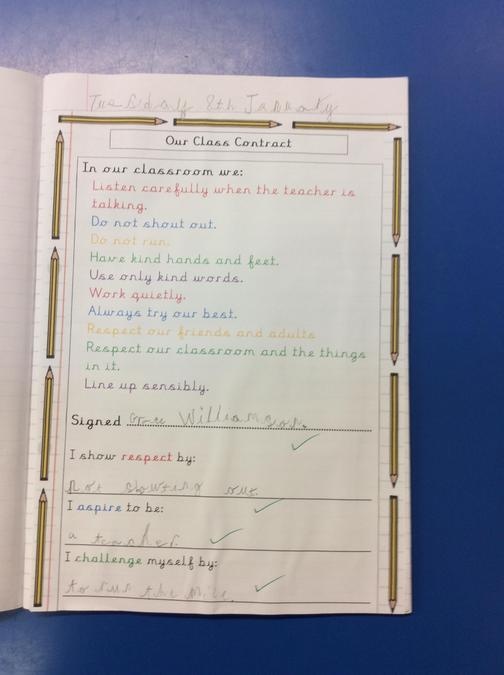 Tuesday 8th January
Our Class Contract
In our classroom we:
Listen carefully when the teacher is
talking.
Do not shout out.
Do not run.
Have kind hands and feet.
Use only kind words.
Work quietly.
Always try our best.
Respect our friends and adults
Respect our classroom and the things
in it.
Line up sensibly.
Signed Williamson.
I show respect by:
not showting out.
I aspire to be:
a teacher.
I challenge myself by:
to run the mile.